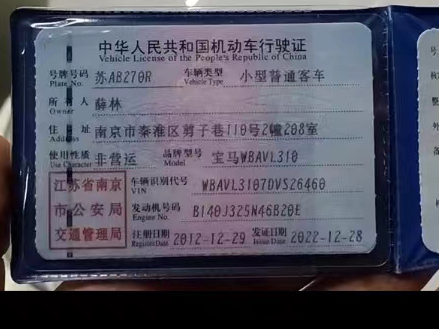 中华人民共和国机动车行驶证
Vehicle License of the People's Republic of China
号牌号码 苏AB270R 车辆类型 小型普通客车
Plate No. Vehicle Type
所有人 薛林
Owner
住址 南京市秦淮区剪子巷110号2幢208室
Address
使用性质 非营运 品牌型号 宝马WBAVL310
Use Character Model
江苏省南京 车辆识别代号 WBAVL3107DVS26460
VIN
市公安局 发动机号码 B140J325N46B20E
Engine No.
交通管理局 注册日期 2012-12-29 发证日期 2022-12-28
Register Date Issue Date